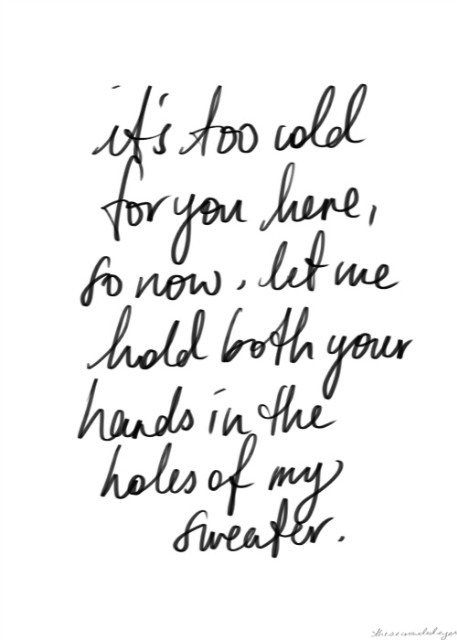 it's too cold
for you here,
so now, let me
hold both your
hands in the
holes of my
sweater.